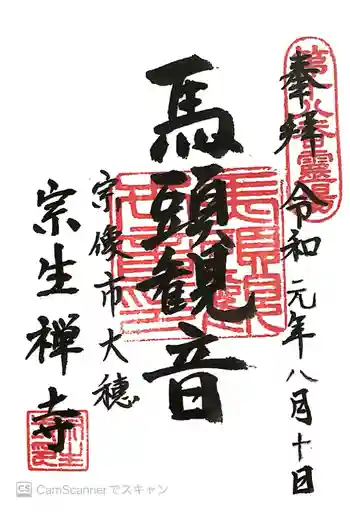 奉拝 令和元年八月十日
馬頭観音
宗像市大穂
宗生禅寺
CS CamScanner でスキャン